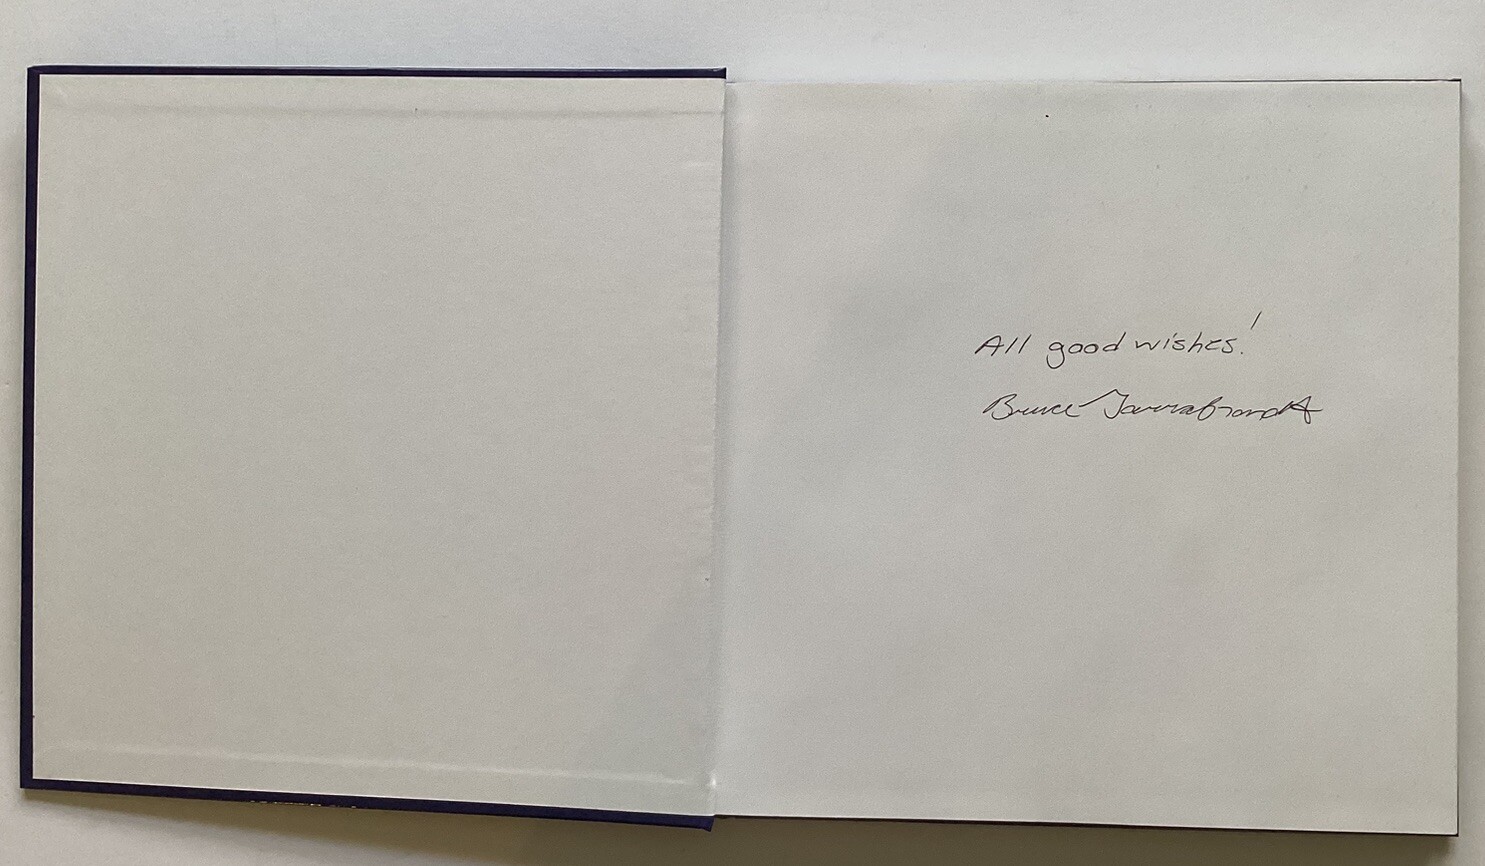 All good wishes!
Bruce Garrabrandt